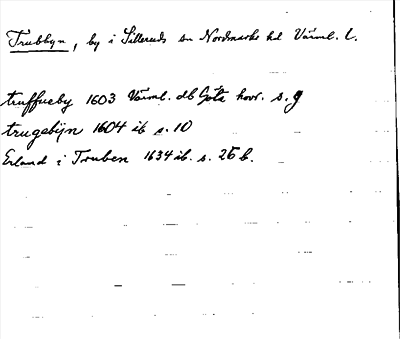 Trubbyn, by i Silleruds sn Nordmarks hd Värml. l.
truffueby 1603 Värml. db Göta hovr. s. 9
trugebÿn 1604 ib s. 10
Erland i Truben 1634 ib. s. 25 b.